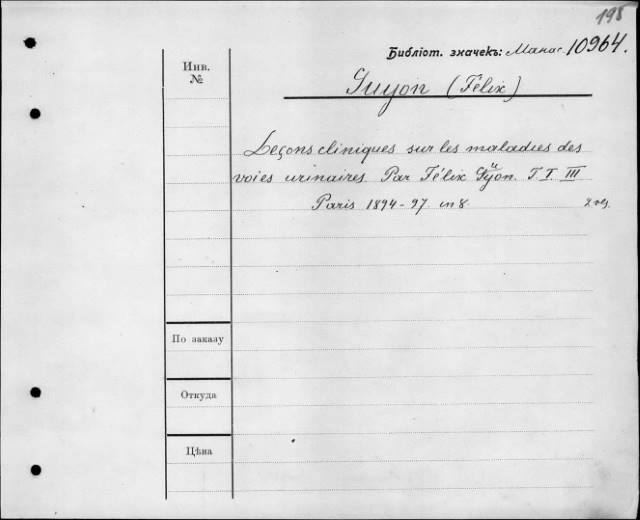 198
Библіот. значекъ: Манас. 10964.
Инв.
№
Guyon (Félix)
Leçons cliniques sur les maladies des
voies urinaires. Par Félix Güyon. T. I. III
Paris 1894-97. in 8. 2 vol.
По заказу
Откуда
Цѣна